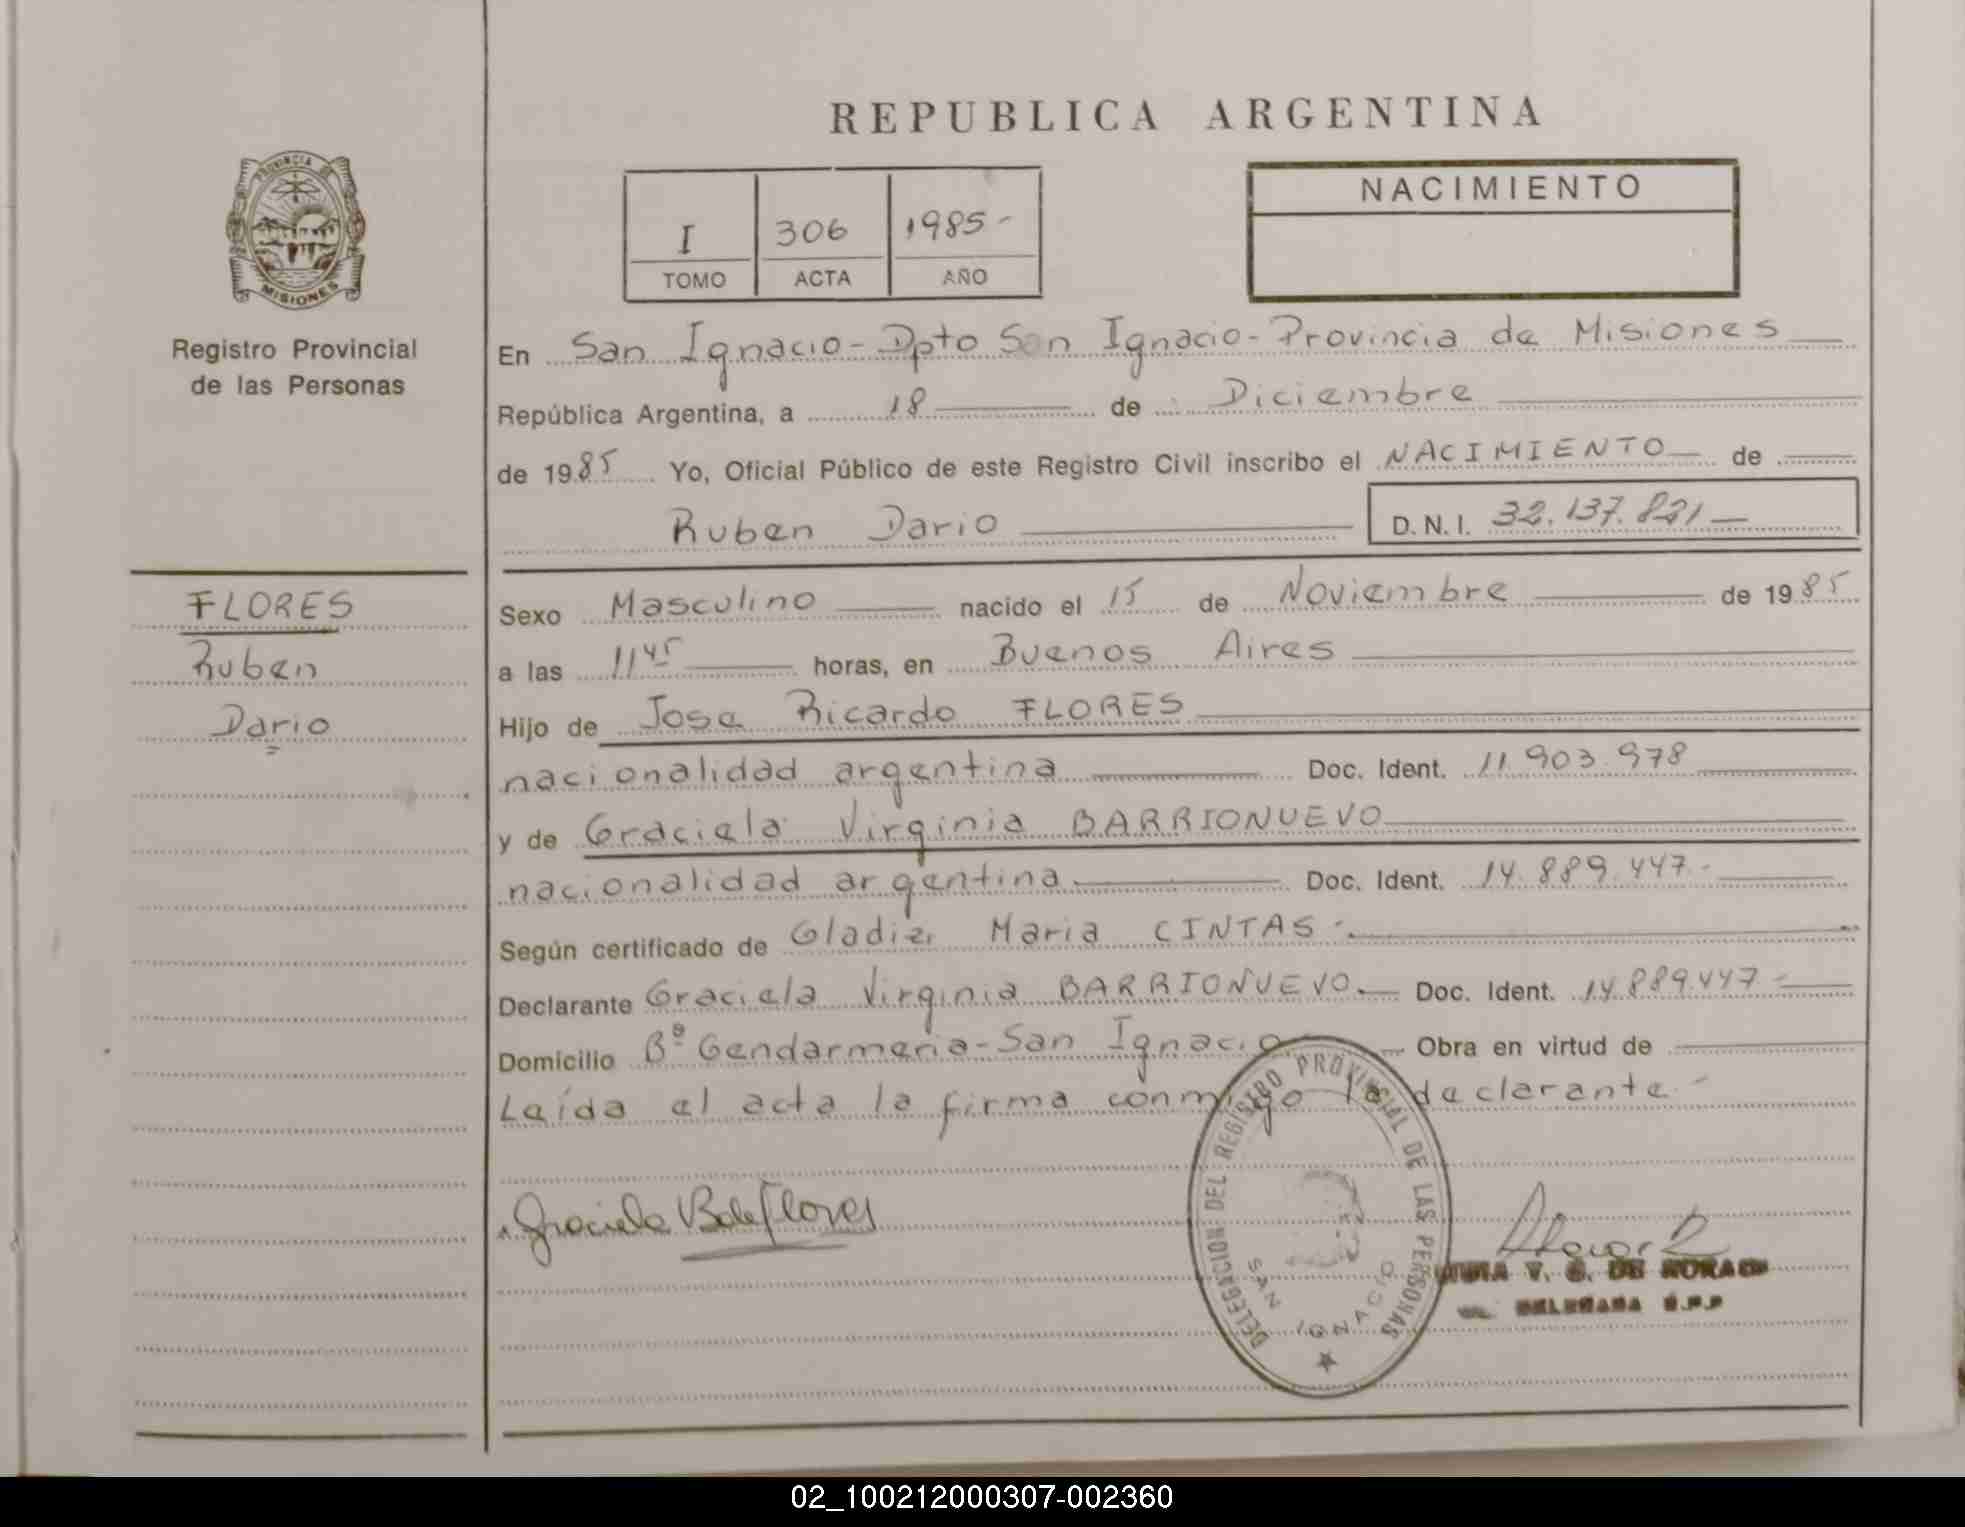 REPUBLICA ARGENTINA
PROVINCIA DE
MISIONES
Registro Provincial
de las Personas
I 306 1985-
TOMO ACTA AÑO
NACIMIENTO
En San Ignacio - Dpto San Ignacio - Provincia de Misiones
República Argentina, a 18 de Diciembre
de 1985 Yo, Oficial Público de este Registro Civil inscribo el NACIMIENTO de
Ruben Dario D.N.I. 32.137.821
FLORES
Ruben
Dario
Sexo Masculino nacido el 15 de Noviembre de 1985
a las 11 45 horas, en Buenos Aires
Hijo de Jose Ricardo FLORES
nacionalidad argentina Doc. Ident. 11.903.978
y de Graciela Virginia BARRIONUEVO
nacionalidad argentina Doc. Ident. 14.889.447.-
Según certificado de Gladiz Maria CINTAS.-
Declarante Graciela Virginia BARRIONUEVO.- Doc. Ident. 14.889.447-
Domicilio Bº Gendarmeria - San Ignacio Obra en virtud de
Laída el acta la firma conmigo la declarante.-
Graciela B de Flores
DELEGACION DEL REGISTRO PROVINCIAL DE LAS PERSONAS
SAN IGNACIO
V. G. DE
02_100212000307-002360